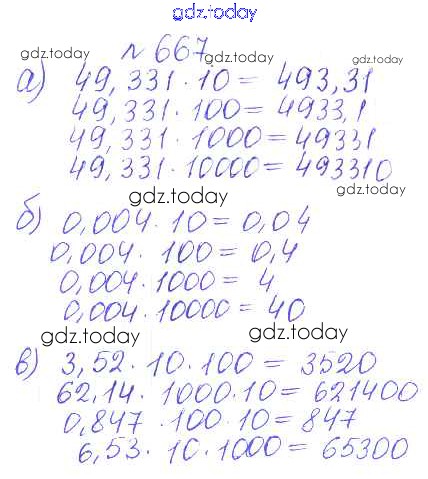 gdz.today
№ 667
gdz.today gdz.today
а) 49,331 · 10 = 493,31
49,331 · 100 = 4933,1
49,331 · 1000 = 49331
49,331 · 10000 = 493310
gdz.today gdz.today
б) 0,004 · 10 = 0,04
0,004 · 100 = 0,4
0,004 · 1000 = 4
0,004 · 10000 = 40
gdz.today gdz.today
в) 3,52 · 10 · 100 = 3520
62,14 · 1000 · 10 = 621400
0,847 · 100 · 10 = 847
6,53 · 10 · 1000 = 65300